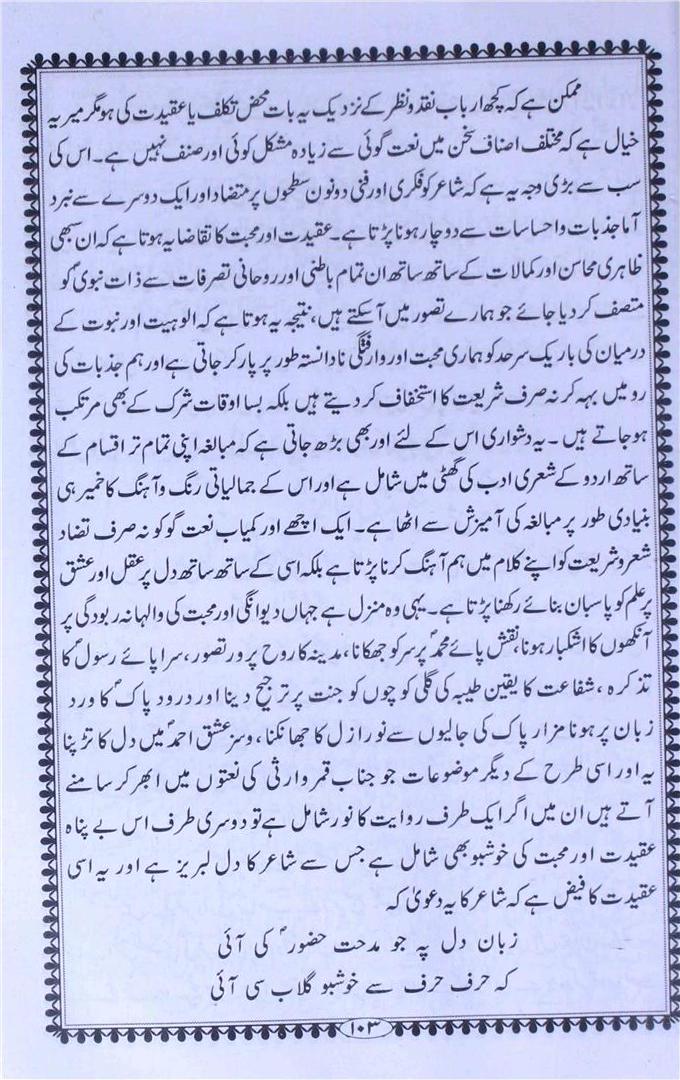 ممکن ہے کہ کچھ ارباب نقد و نظر کے نزدیک یہ بات محض تکلف یا عقیدت کی ہو مگر میر یہ
خیال ہے کہ مختلف اصناف سخن میں نعت گوئی سے زیادہ مشکل کوئی اور صنف نہیں ہے۔ اس کی
سب سے بڑی وجہ یہ ہے کہ شاعر کو فکری اور فنی دونوں سطحوں پر متضاد اور ایک دوسرے سے نبرد
آما جذبات و احساسات سے دوچار ہونا پڑتا ہے۔ عقیدت اور محبت کا تقاضا یہ ہوتا ہے کہ ان سبھی
ظاہری محاسن اور کمالات کے ساتھ ساتھ ان تمام باطنی اور روحانی تصرفات سے ذات نبویؐ کو
متصف کر دیا جائے جو ہمارے تصور میں آسکتے ہیں، نتیجہ یہ ہوتا ہے کہ الوہیت اور نبوت کے
درمیان کی باریک سرحد کو ہماری محبت اور وارفتگی نادانستہ طور پر پار کر جاتی ہے اور ہم جذبات کی
رو میں بہہ کر نہ صرف شریعت کا استخفاف کر دیتے ہیں بلکہ بسا اوقات شرک کے بھی مرتکب
ہو جاتے ہیں ۔ یہ دشواری اس کے لئے اور بھی بڑھ جاتی ہے کہ مبالغہ اپنی تمام تر اقسام کے
ساتھ اردو کے شعری ادب کی گھٹی میں شامل ہے اور اس کے جمالیاتی رنگ و آہنگ کا خمیر ہی
بنیادی طور پر مبالغہ کی آمیزش سے اٹھا ہے۔ ایک اچھے اور کمیاب نعت گو کو نہ صرف تضاد
شعر و شریعت کو اپنے کلام میں ہم آہنگ کرنا پڑتا ہے بلکہ اسی کے ساتھ ساتھ دل پر عقل اور عشق
پر علم کو پاسبان بنائے رکھنا پڑتا ہے۔ یہی وہ منزل ہے جہاں دیوانگی اور محبت کی والہانہ ربودگی پر
آنکھوں کا اشکبار ہونا، نقش پائے محمدؐ پر سر کو جھکانا، مدینہ کا روح پرور تصور، سراپائے رسولؐ کا
تذکرہ ، شفاعت کا یقین طیبہ کی گلی کوچوں کو جنت پر ترجیح دینا اور درود پاکؐ کا ورد
زبان پر ہونا مزار پاک کی جالیوں سے نور ازل کا جھانکنا ، و سز عشق احمدؐ میں دل کا تڑپنا
یہ اور اسی طرح کے دیگر موضوعات جو جناب قمر وارثی کی نعتوں میں ابھر کر سامنے
آتے ہیں ان میں اگر ایک طرف روایت کا نور شامل ہے تو دوسری طرف اس بے پناہ
عقیدت اور محبت کی خوشبو بھی شامل ہے جس سے شاعر کا دل لبریز ہے اور یہ اسی
عقیدت کا فیض ہے کہ شاعر کا یہ دعویٰ کہ
زبان دل پہ جو مدحت حضورؐ کی آئی
کہ حرف حرف سے خوشبو گلاب سی آئی
۱۰۳